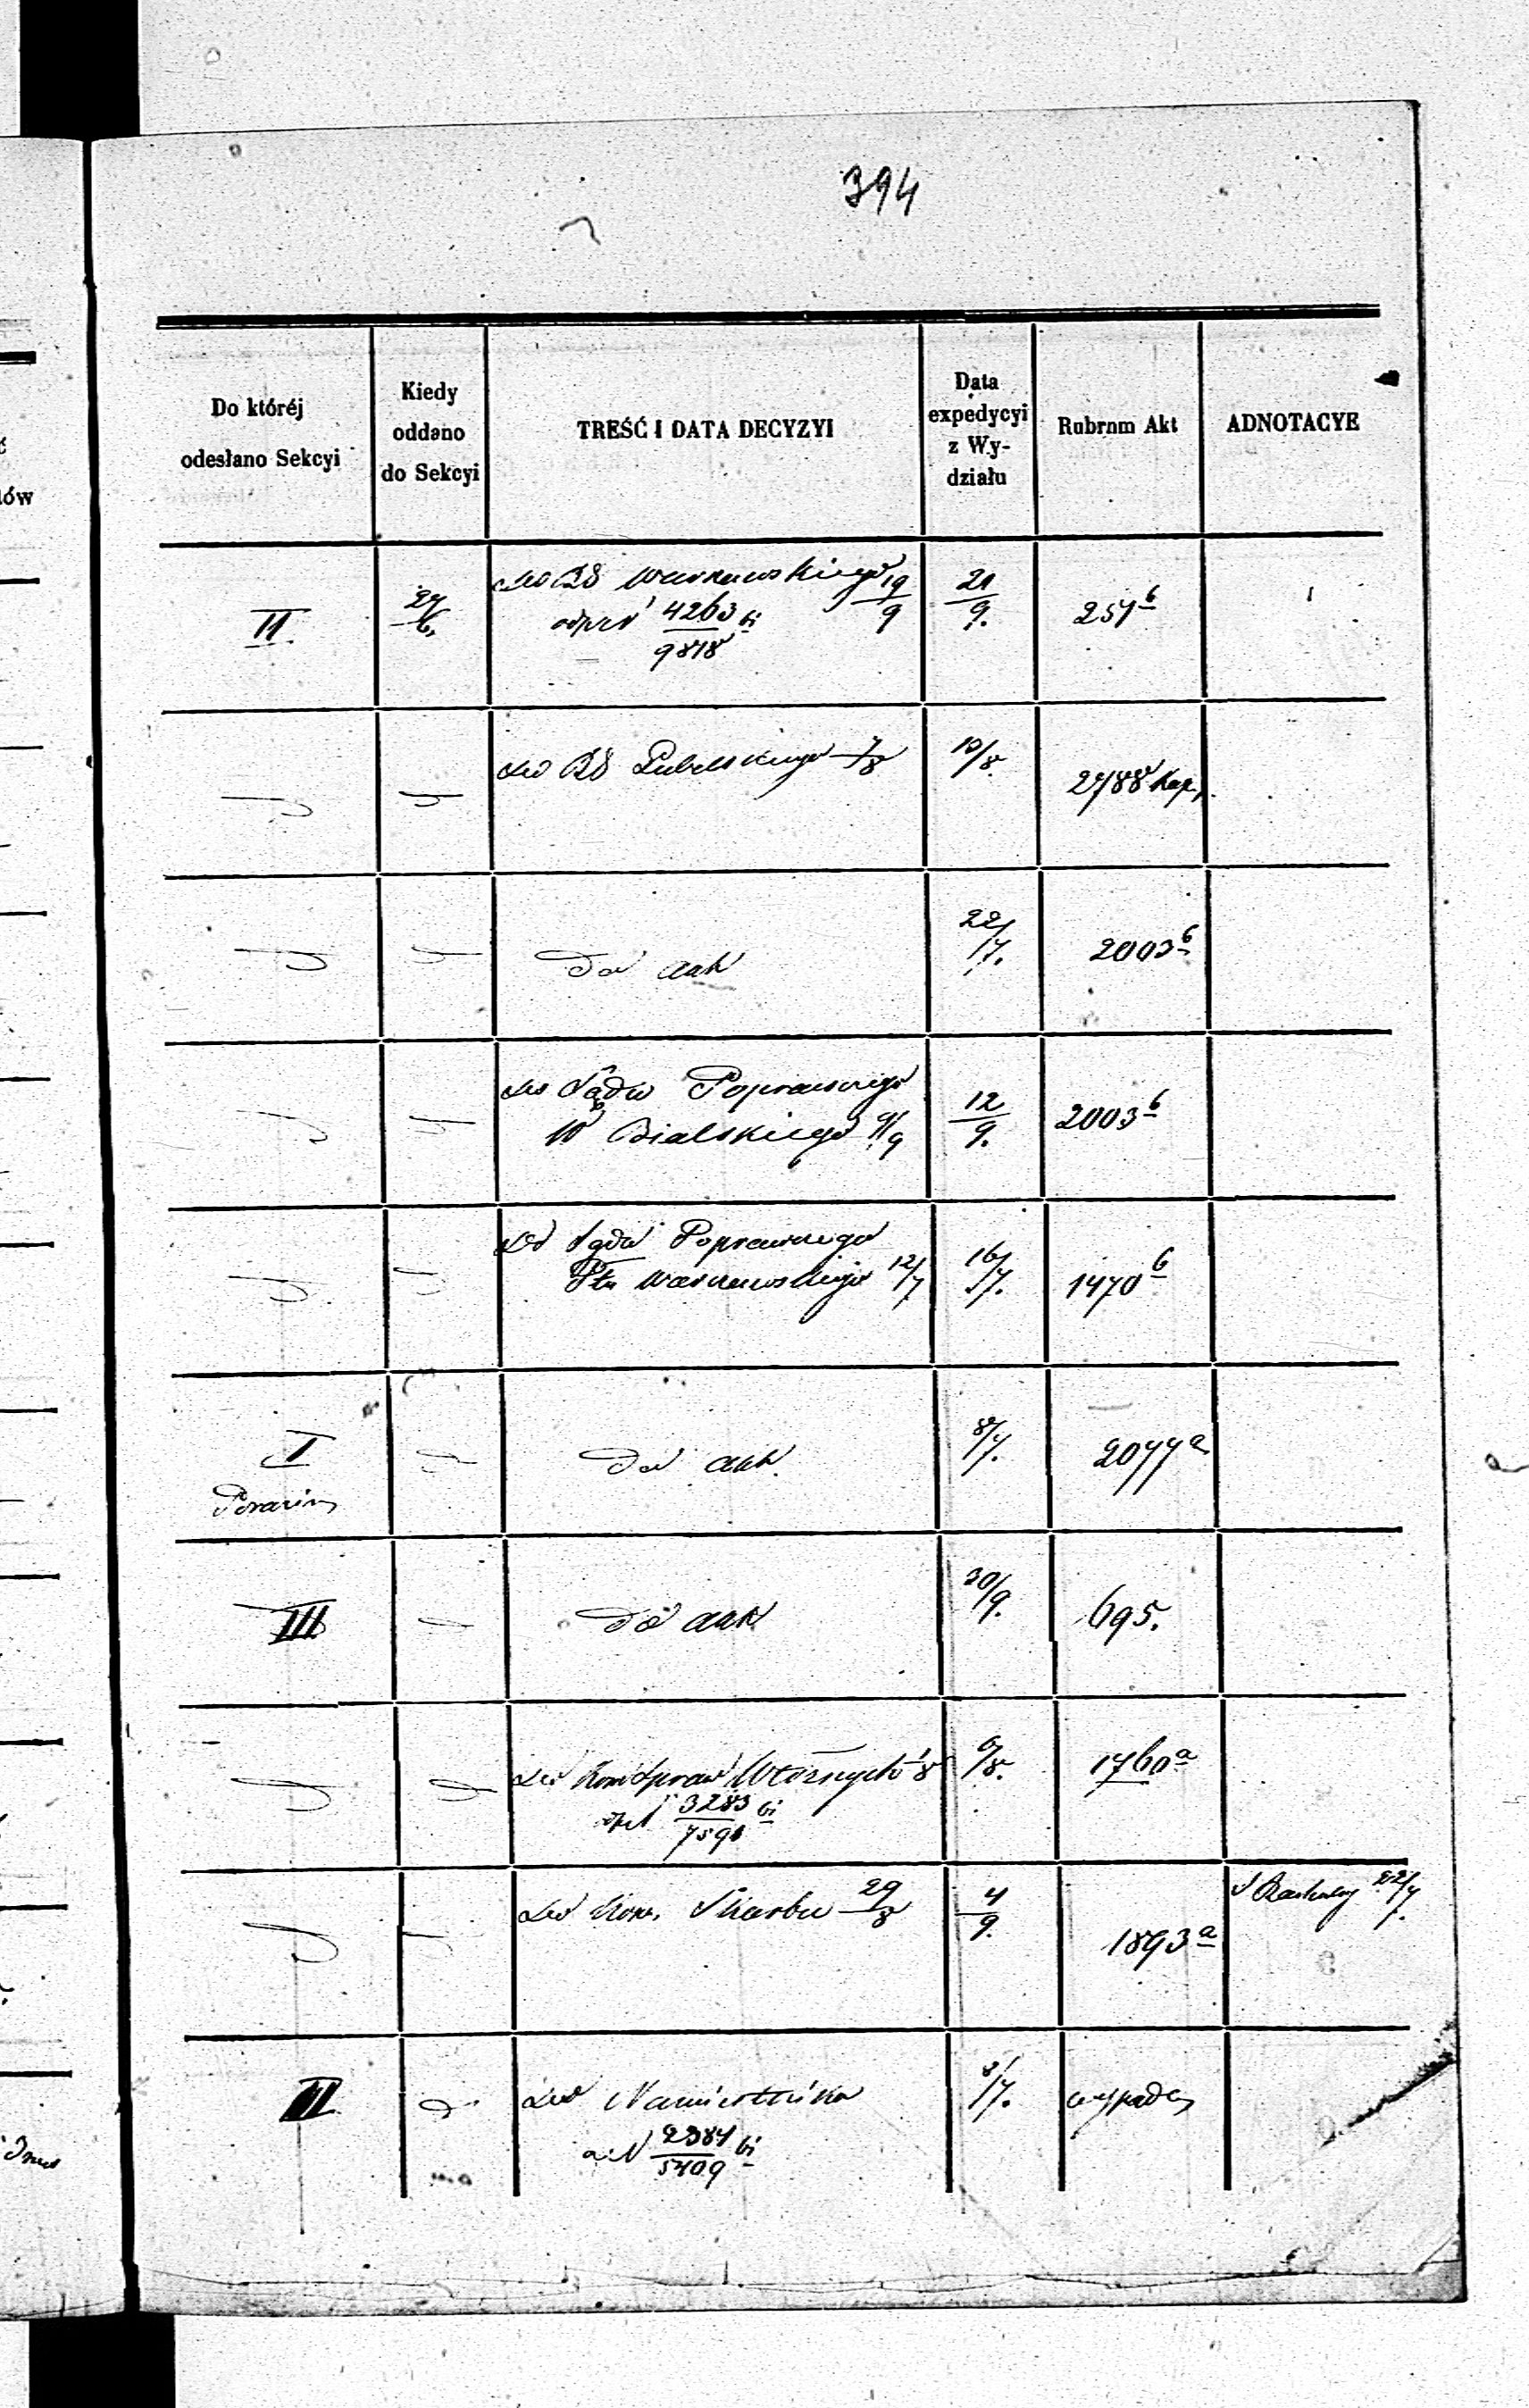 394
Do któréj
odesłano Sekcyi
Kiedy
oddano
do Sekcyi
TREŚĆ I DATA DECYZYI
Data
expedycyi
z Wy-
działu
Rubrum Akt
ADNOTACYE
II
Do RG Warszawskiego 19/9
4263/9818
21/9.
257 b
Do RG Lubelskiego 7/8
10/8.
2788
Do akt
22/7.
2003 b
Do Sądu Poprawczego
W Bialskiego 9/9
12/9.
2003 b
Do Sądu Poprawczego
Ptu Warszawskiego 12/7
16/7.
1470 b
I
Do akt.
8/7.
2077 a
III
Do akt
30/9.
695.
Do Kom Spraw Wewnętrznych 1/8
3283/7591
6/8.
1760 a
Do Kom. Skarbu 29/8
4/9.
1893 a
22/7.
III
Do Namiestnika
2384/5409
8/7.